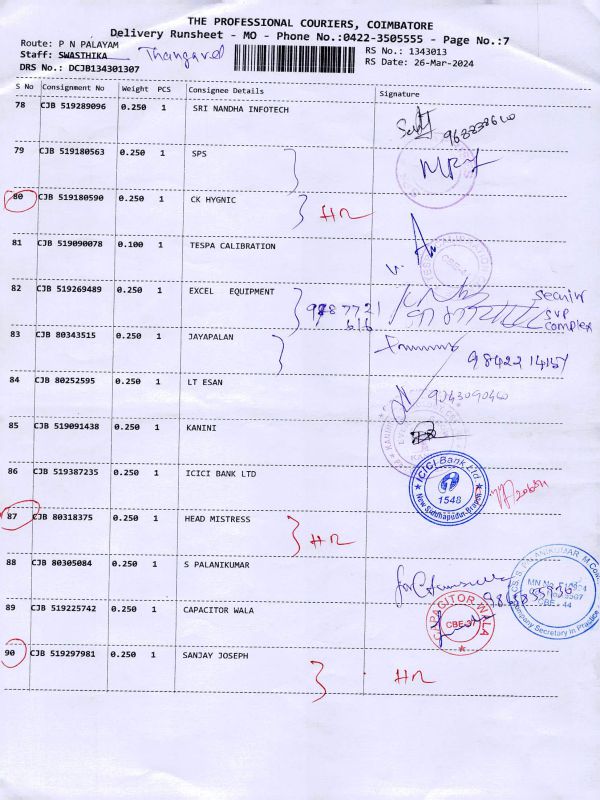 THE PROFESSIONAL COURIERS, COIMBATORE
Delivery Runsheet - MO - Phone No.:0422-3505555 - Page No.:7
Route: P N PALAYAM RS No.: 1343013
Staff: SWASTHIKA Thangavel RS Date: 26-Mar-2024
DRS No.: DCJB134301307
S No Consignment No Weight PCS Consignee Details Signature
78 CJB 519289096 0.250 1 SRI NANDHA INFOTECH
79 CJB 519180563 0.250 1 SPS
80 CJB 519180590 0.250 1 CK HYGNIC HR
81 CJB 519090078 0.100 1 TESPA CALIBRATION
82 CJB 519269489 0.250 1 EXCEL EQUIPMENT
SVP
complex
83 CJB 80343515 0.250 1 JAYAPALAN
84 CJB 80252595 0.250 1 LT ESAN 9043090460
85 CJB 519091438 0.250 1 KANINI
86 CJB 519387235 0.250 1 ICICI BANK LTD
ICICI Bank Ltd
1548
87 CJB 80318375 0.250 1 HEAD MISTRESS HR
88 CJB 80305084 0.250 1 S PALANIKUMAR
89 CJB 519225742 0.250 1 CAPACITOR WALA
CAPACITOR WALA
CBE-37
CBE - 44
Company Secretary in Practice
90 CJB 519297981 0.250 1 SANJAY JOSEPH HR